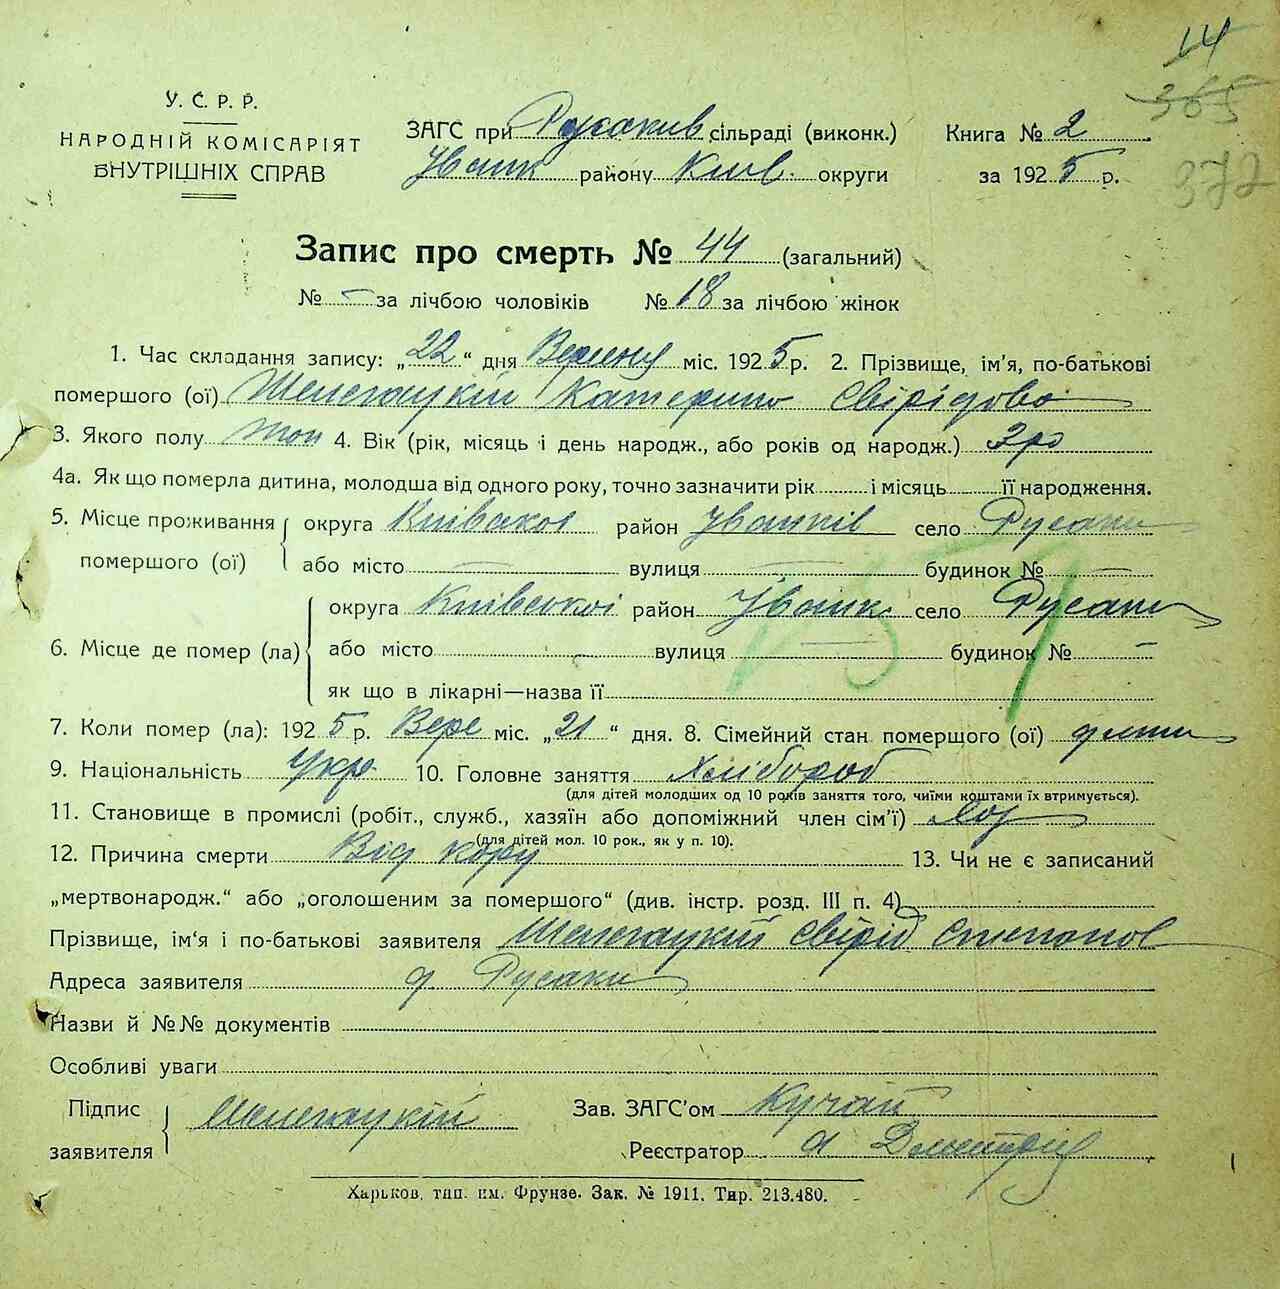 14
365
372
У. С. Р. Р.
НАРОДНІЙ КОМІСАРІЯТ
ВНУТРІШНІХ СПРАВ
ЗАГС при Русаків сільраді (виконк.)
Іванк району Київ. округи
Книга № 2
за 1925 р.
Запис про смерть № 44 (загальний)
№ – за лічбою чоловіків № 18 за лічбою жінок
1. Час складання запису: „22“ дня Вересня міс. 1925 р. 2. Прізвище, ім'я, по-батькові
помершого (ої) Шелегацкій Катерина Свірідова
3. Якого полу жон 4. Вік (рік, місяць і день народж., або років од народж.) 2 ро
4а. Як що померла дитина, молодша від одного року, точно зазначити рік і місяць її народження.
5. Місце проживання помершого (ої) округа Київскої район Іванків село Русаки
або місто вулиця будинок №
6. Місце де помер (ла) округа Київської район Іванк село Русаки
або місто вулиця будинок № –
як що в лікарні—назва її
7. Коли помер (ла): 1925 р. Вере міс. „21“ дня. 8. Сімейний стан помершого (ої) дитина
9. Національність Укр 10. Головне заняття Хлібороб
(для дітей молодших од 10 років заняття того, чиїми коштами їх втримується).
11. Становище в промислі (робіт., служб., хазяїн або допоміжний член сім'ї) Хоз
(для дітей мол. 10 рок., як у п. 10).
12. Причина смерти Від кору 13. Чи не є записаний
„мертвонародж.“ або „оголошеним за помершого“ (див. інстр. розд. III п. 4)
Прізвище, ім'я і по-батькові заявителя Шелегацкий Свірід Степанов
Адреса заявителя д Русаки
Назви й №№ документів
Особливі уваги
Підпис заявителя Шелегацкій
Зав. ЗАГС'ом Кучай
Реєстратор
Харьков, тип. им. Фрунзе. Зак. № 1911. Тир. 213.480.